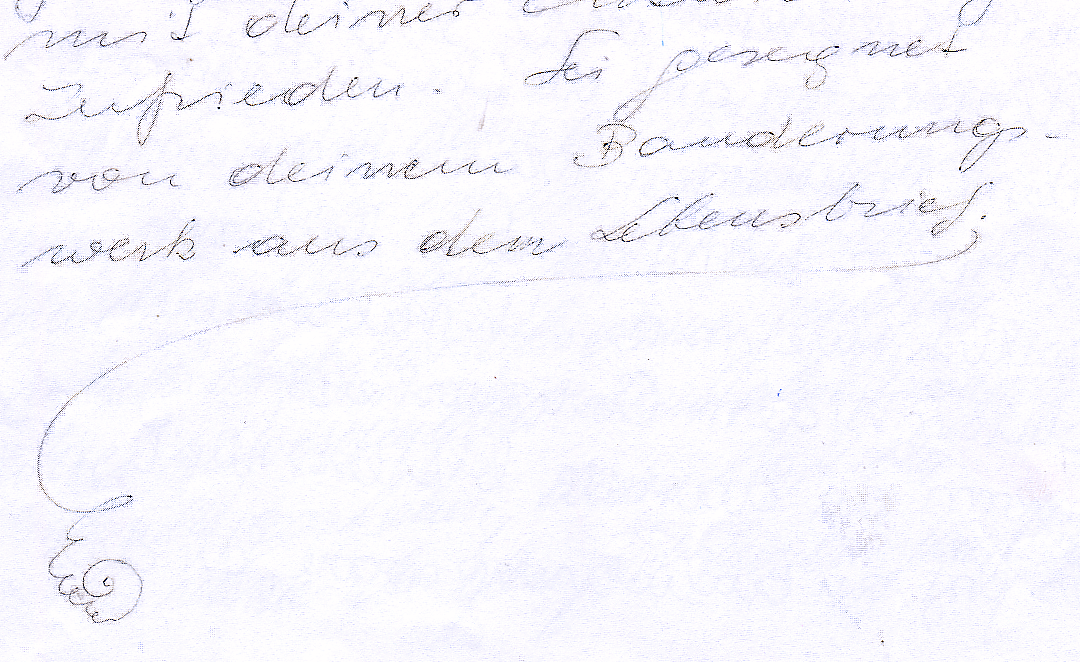 mit deiner
zufrieden. Sei gesegnet
von deinem Banderungs-
werk aus dem Lebensbrief.